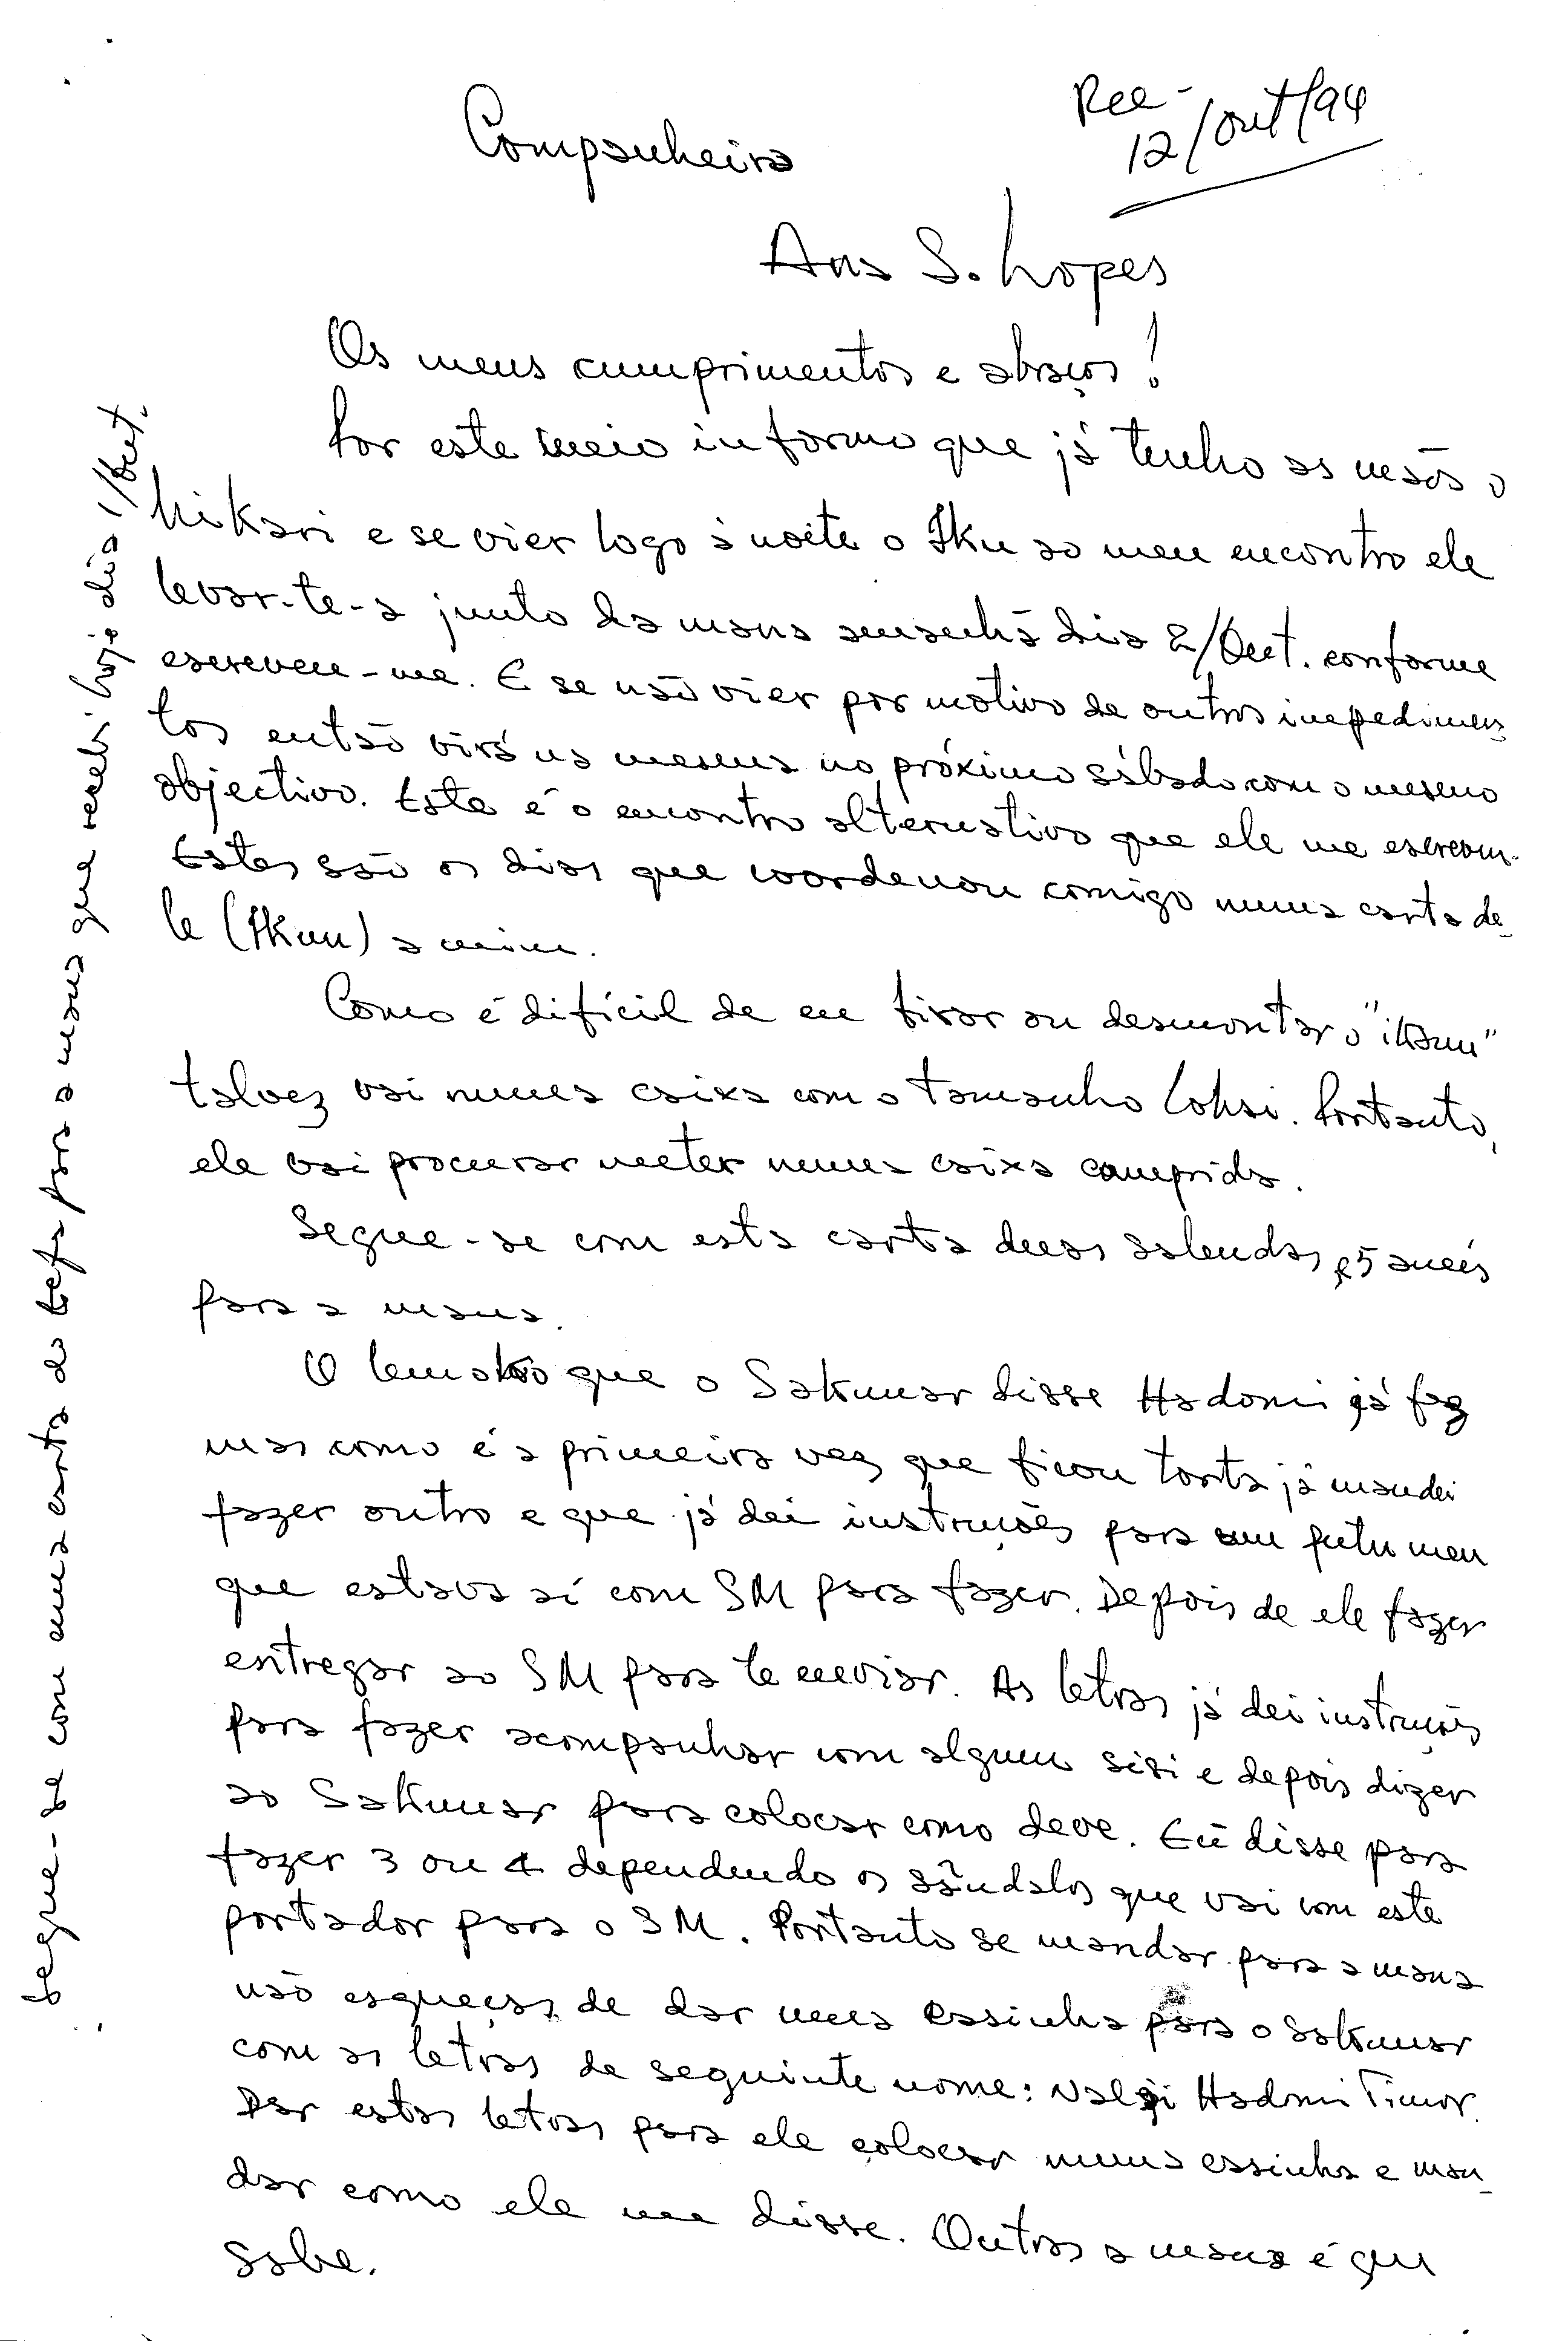 Rec-
12/Out/94
Companheira
Ana S. Lopes
Os meus cumprimentos e abraços!
Por este meio informo que já tenho as mãos o
hikari e se vier logo à noite o Iku ao meu encontro ele
levar-te-a junto da mana amanhã dia 2/Out. conforme
escreveu-me. E se não vier por motivo de outros impedimen-
tos então virá na mesma no próximo sábado com o mesmo
objectivo. Este é o encontro alternativo que ele me escreveu.
Estes são os dias que coordenou comigo numa carta de-
le (Ikun) a mim.
Como é difícil de eu tirar ou desmontar o "ikun"
talvez vai numa caixa com o tamanho Lohai. Portanto,
ele vai procurar meter numa caixa comprida.
Segue-se com esta carta duas salendas, e 5 aneis
para a mana.
O que o Sakunar disse Hadomi já fez
mas como é a primeira vez que ficou torta já mandei
fazer outro e que já dei instruções para um meu
que estava aí com SM para fazer. Depois de ele fazer
entregar ao SM para te enviar. As letras já dei instruções
para fazer acompanhar com algum sisi e depois dizer
ao Sakunar para colocar como deve. Eu disse para
fazer 3 ou 4 dependendo os sândalos que vai com este
portador para o SM. Portanto se mandar para a mana
não esqueças de dar uma casinha para o Sakunar
com as letras de seguinte nome: Hadomi Timor.
Dar estas letras para ele colocar numa casinha e man-
dar como ele me disse. Outras a mana é que
sabe.
Segue-se com uma carta do para a mana que recebi hoje dia 1/Out.